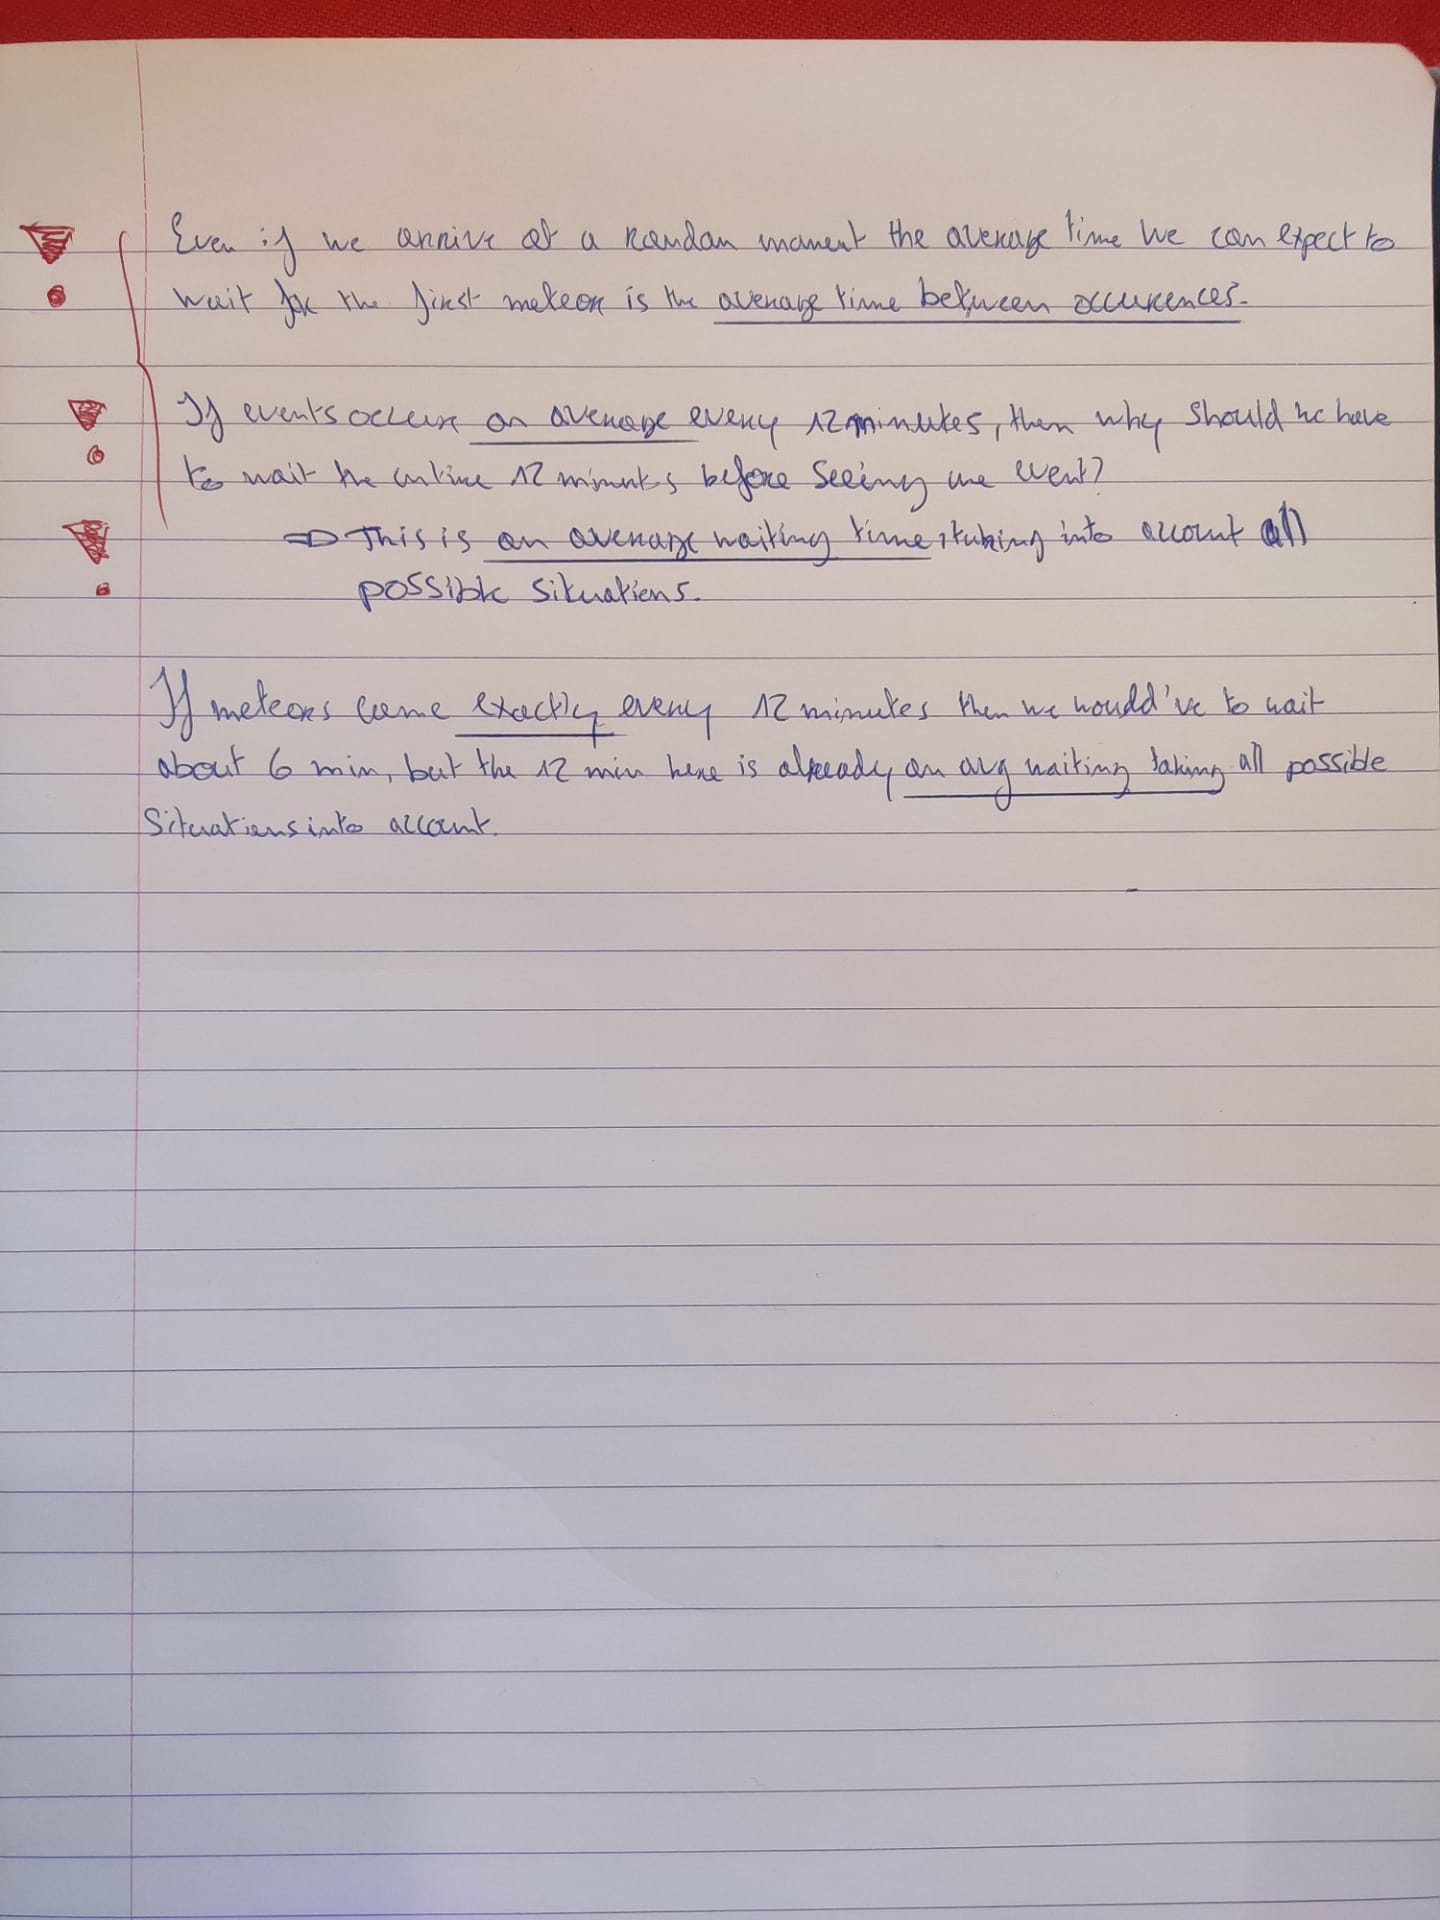 Even if we arrive at a random moment the average time we can expect to
wait for the first meteor is the average time between occurences.
If events occurs on average every 12 minutes, then why should we have
to wait the entire 12 minutes before seeing one event?
⇒ This is an average waiting time, taking into account all
possible situations.
If meteors came exactly every 12 minutes then we would've to wait
about 6 min, but the 12 min here is already an avg waiting taking all possible
situations into account.